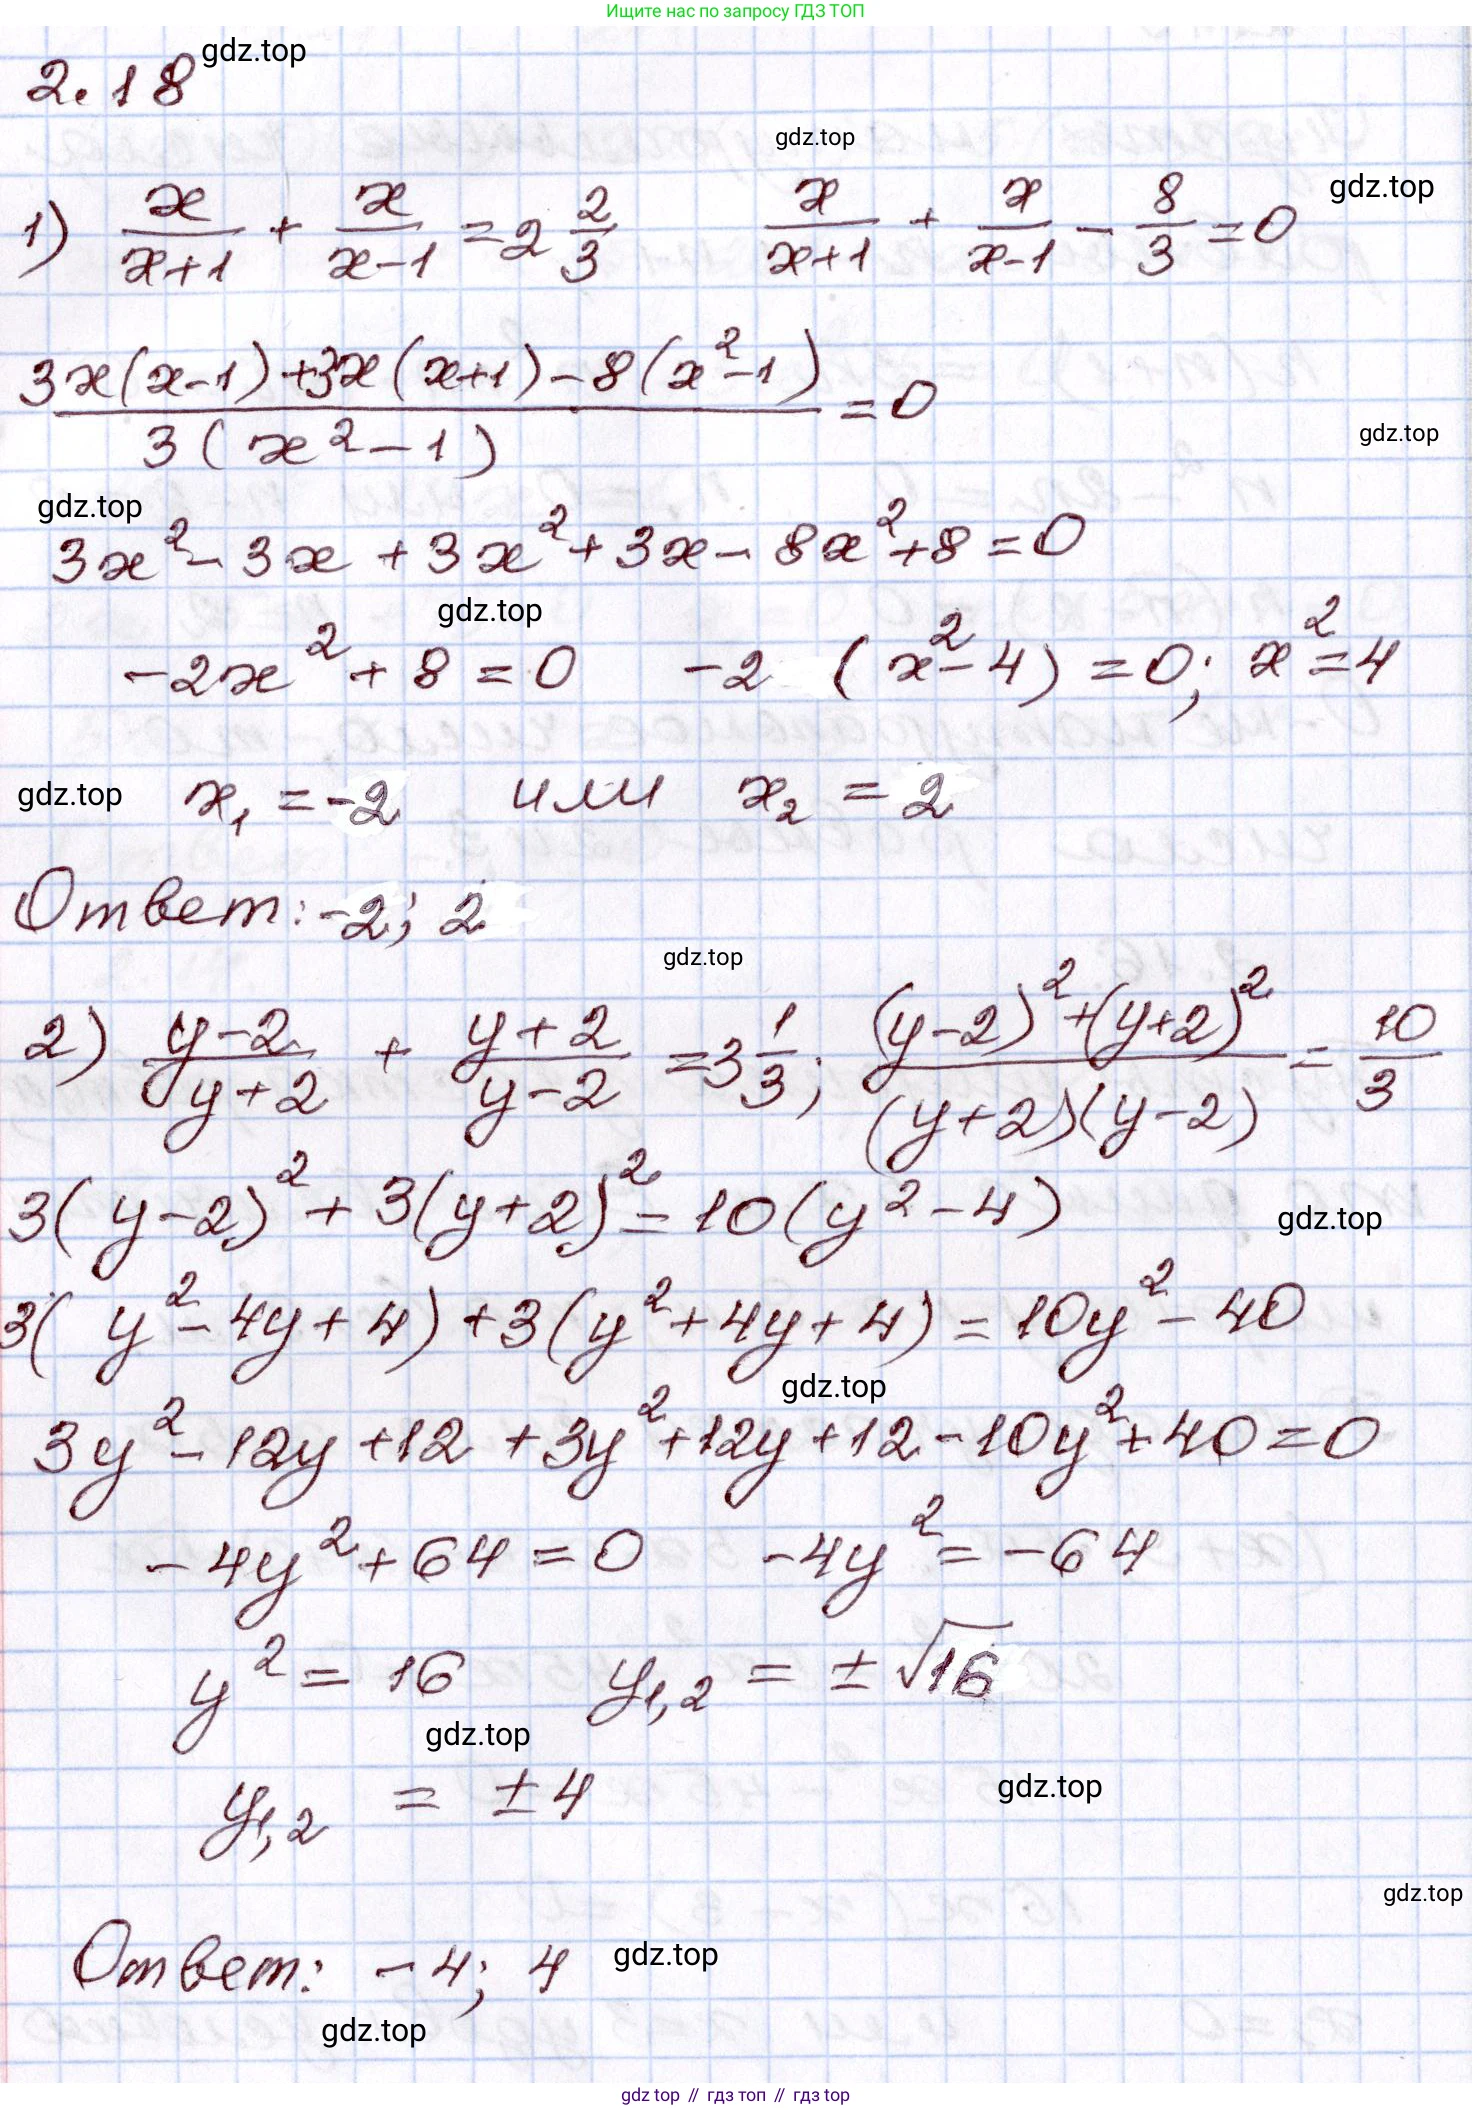 Ищите нас по запросу ГДЗ ТОП
2.18 gdz.top
gdz.top
gdz.top
1) x/(x+1) + x/(x-1) = 2 2/3   x/(x+1) + x/(x-1) - 8/3 = 0
(3x(x-1)+3x(x+1)-8(x²-1))/(3(x²-1)) = 0
gdz.top
gdz.top
3x²-3x+3x²+3x-8x²+8=0
gdz.top
-2x²+8=0   -2(x²-4)=0; x²=4
gdz.top x₁=-2 или x₂=2
Ответ: -2; 2
gdz.top
2) (y-2)/(y+2) + (y+2)/(y-2) = 3 1/3; ((y-2)²+(y+2)²)/((y+2)(y-2)) = 10/3
3(y-2)²+3(y+2)²=10(y²-4)
gdz.top
3(y²-4y+4)+3(y²+4y+4)=10y²-40
gdz.top
3y²-12y+12+3y²+12y+12-10y²+40=0
-4y²+64=0   -4y²=-64
y²=16   y₁,₂=±√16
gdz.top
gdz.top
y₁,₂=±4
gdz.top
Ответ: -4; 4 gdz.top
gdz.top
gdz top // гдз топ // гдз top